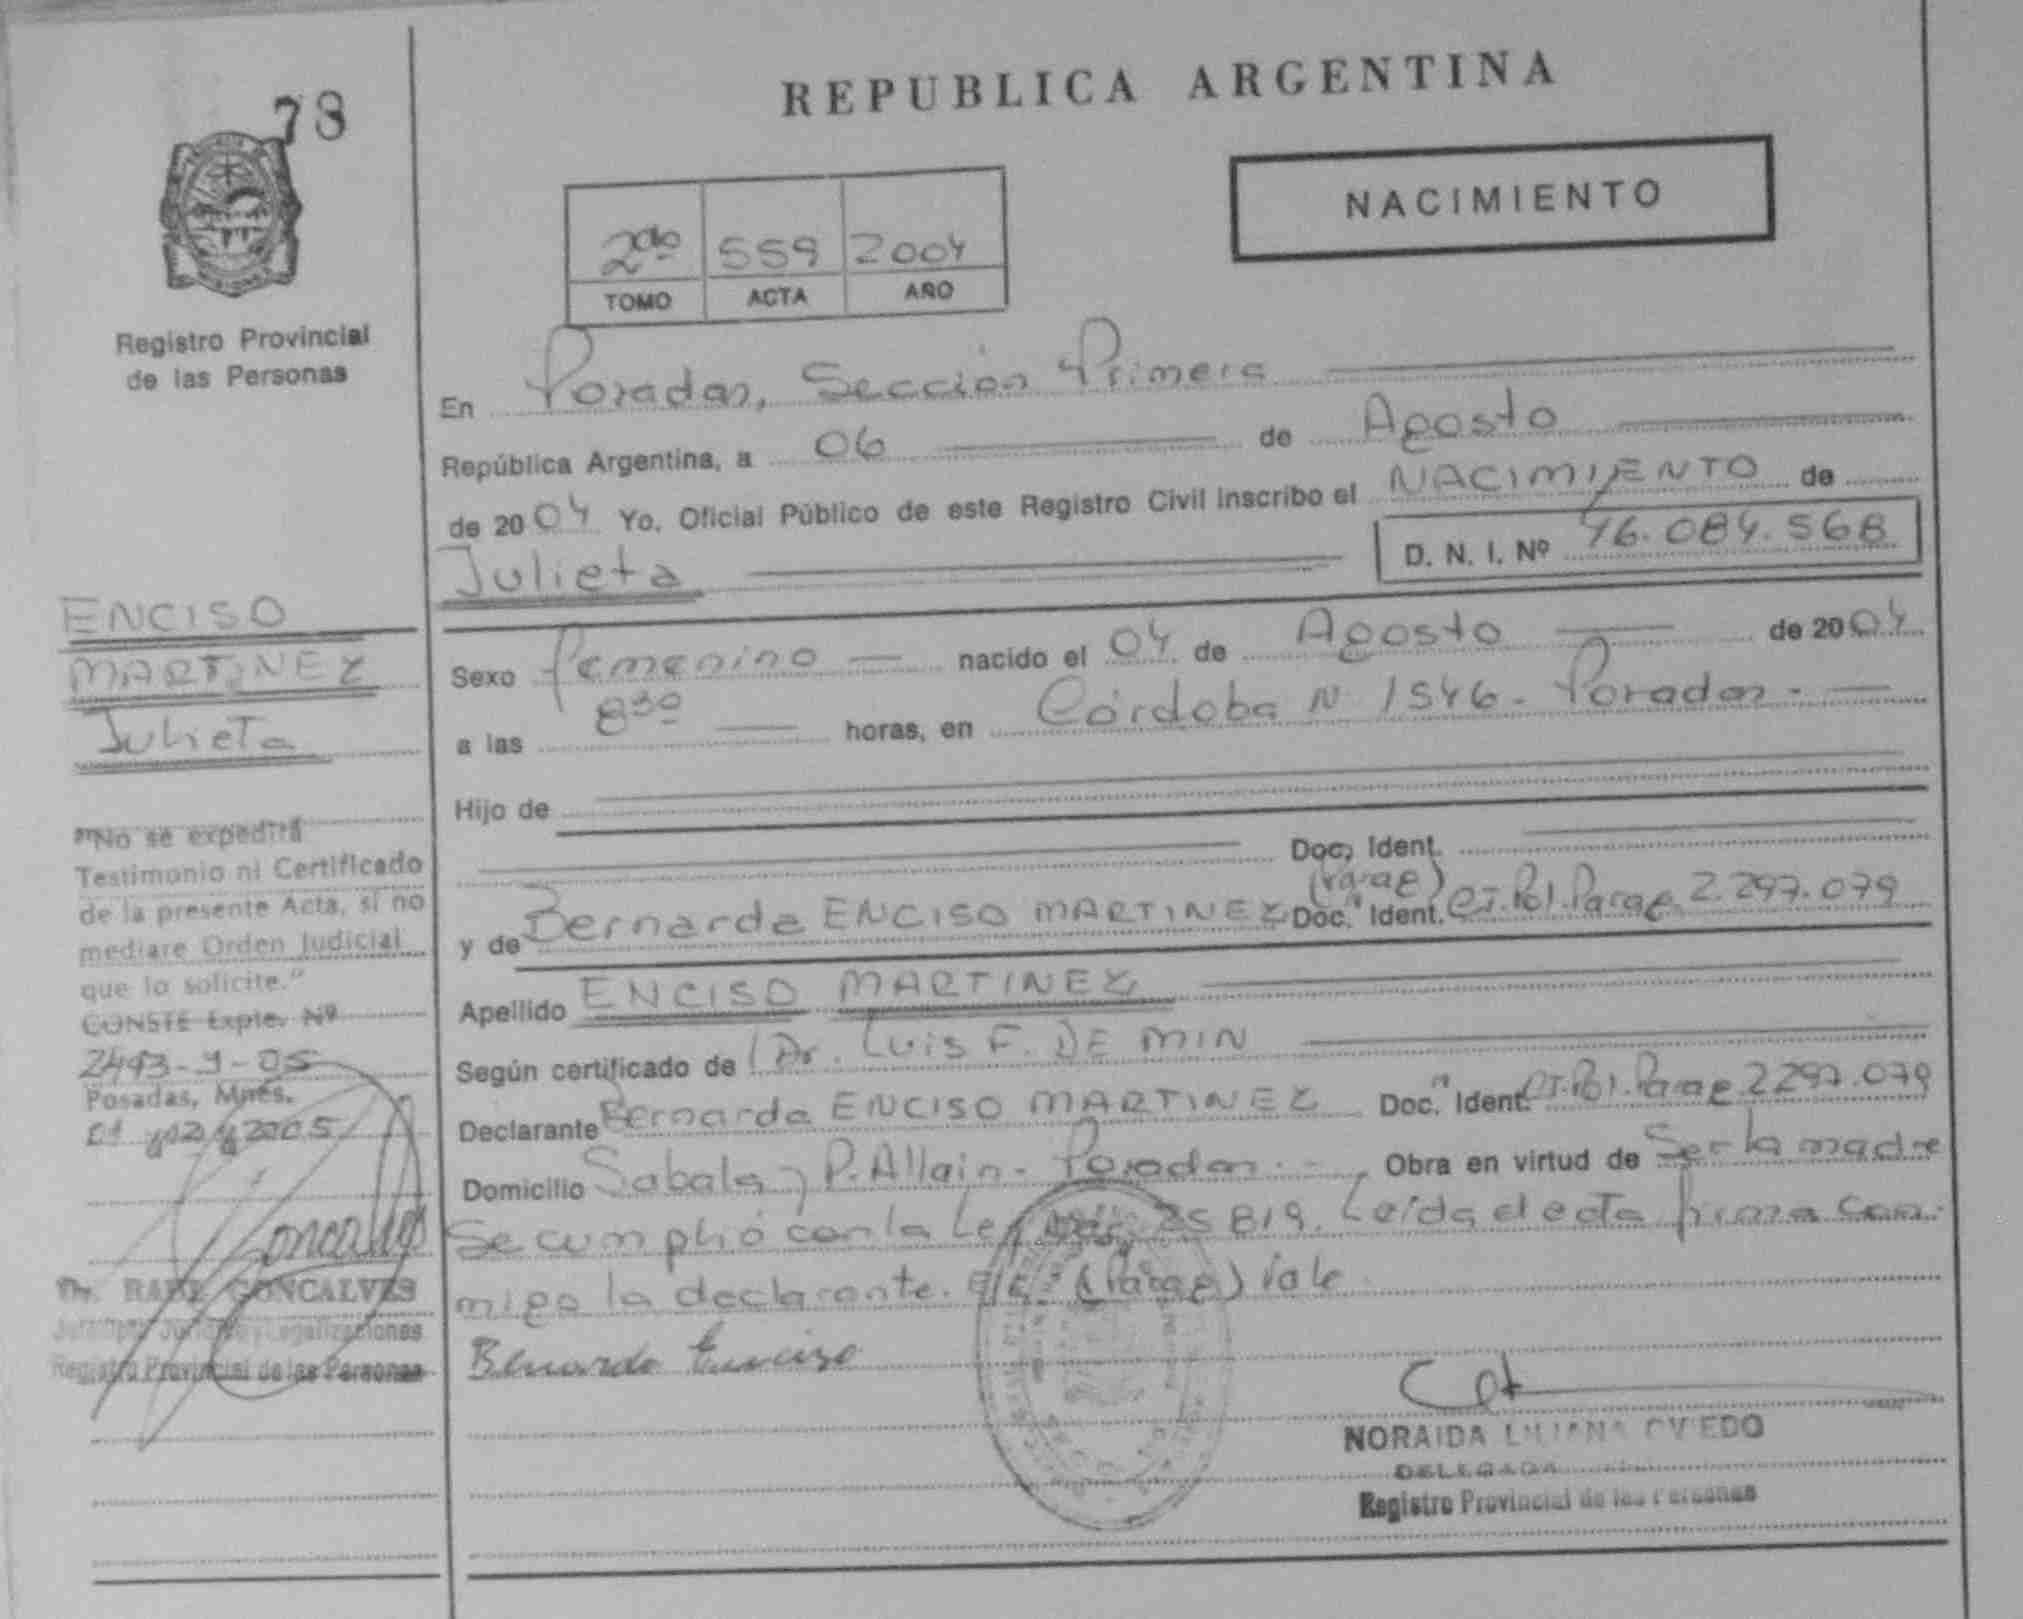 78
REPUBLICA ARGENTINA
NACIMIENTO
2do 559 2004
TOMO ACTA AÑO
Registro Provincial
de las Personas
En Posadas, Sección Primera
República Argentina, a 06 de Agosto
de 2004 Yo, Oficial Público de este Registro Civil inscribo el NACIMIENTO de
Julieta D. N. I. Nº 46.084.568
ENCISO
MARTINEZ
Julieta
Sexo femenino nacido el 04 de Agosto de 2004
a las 830 horas, en Córdoba N 1546 - Posadas.
Hijo de
Doc. Ident.
(Parag)
y de Bernarda ENCISO MARTINEZ Doc. Ident. CI. Pol. Parag. 2.297.079
Apellido ENCISO MARTINEZ
Según certificado de Dr. Luis F. DE MIN
Declarante Bernarda ENCISO MARTINEZ Doc. Ident. CI. Pol. Parag 2297.079
Domicilio Sabala y P. Allain - Posadas. Obra en virtud de Ser la madre
Se cumplió con la Ley 25819. Leída el acta firma con-
migo la declarante. E/L: (Parag) Vale
Bernarda Enciso
"No se expedirá
Testimonio ni Certificado
de la presente Acta, si no
mediare Orden Judicial
que lo solicite."
CONSTE Expte. Nº
Posadas, Mnes.
Goncalves
Dr. RAUL GONCALVES
Registro Provincial de las Personas
NORAIDA LILIANA OVIEDO
DELEGADA
Registro Provincial de las Personas